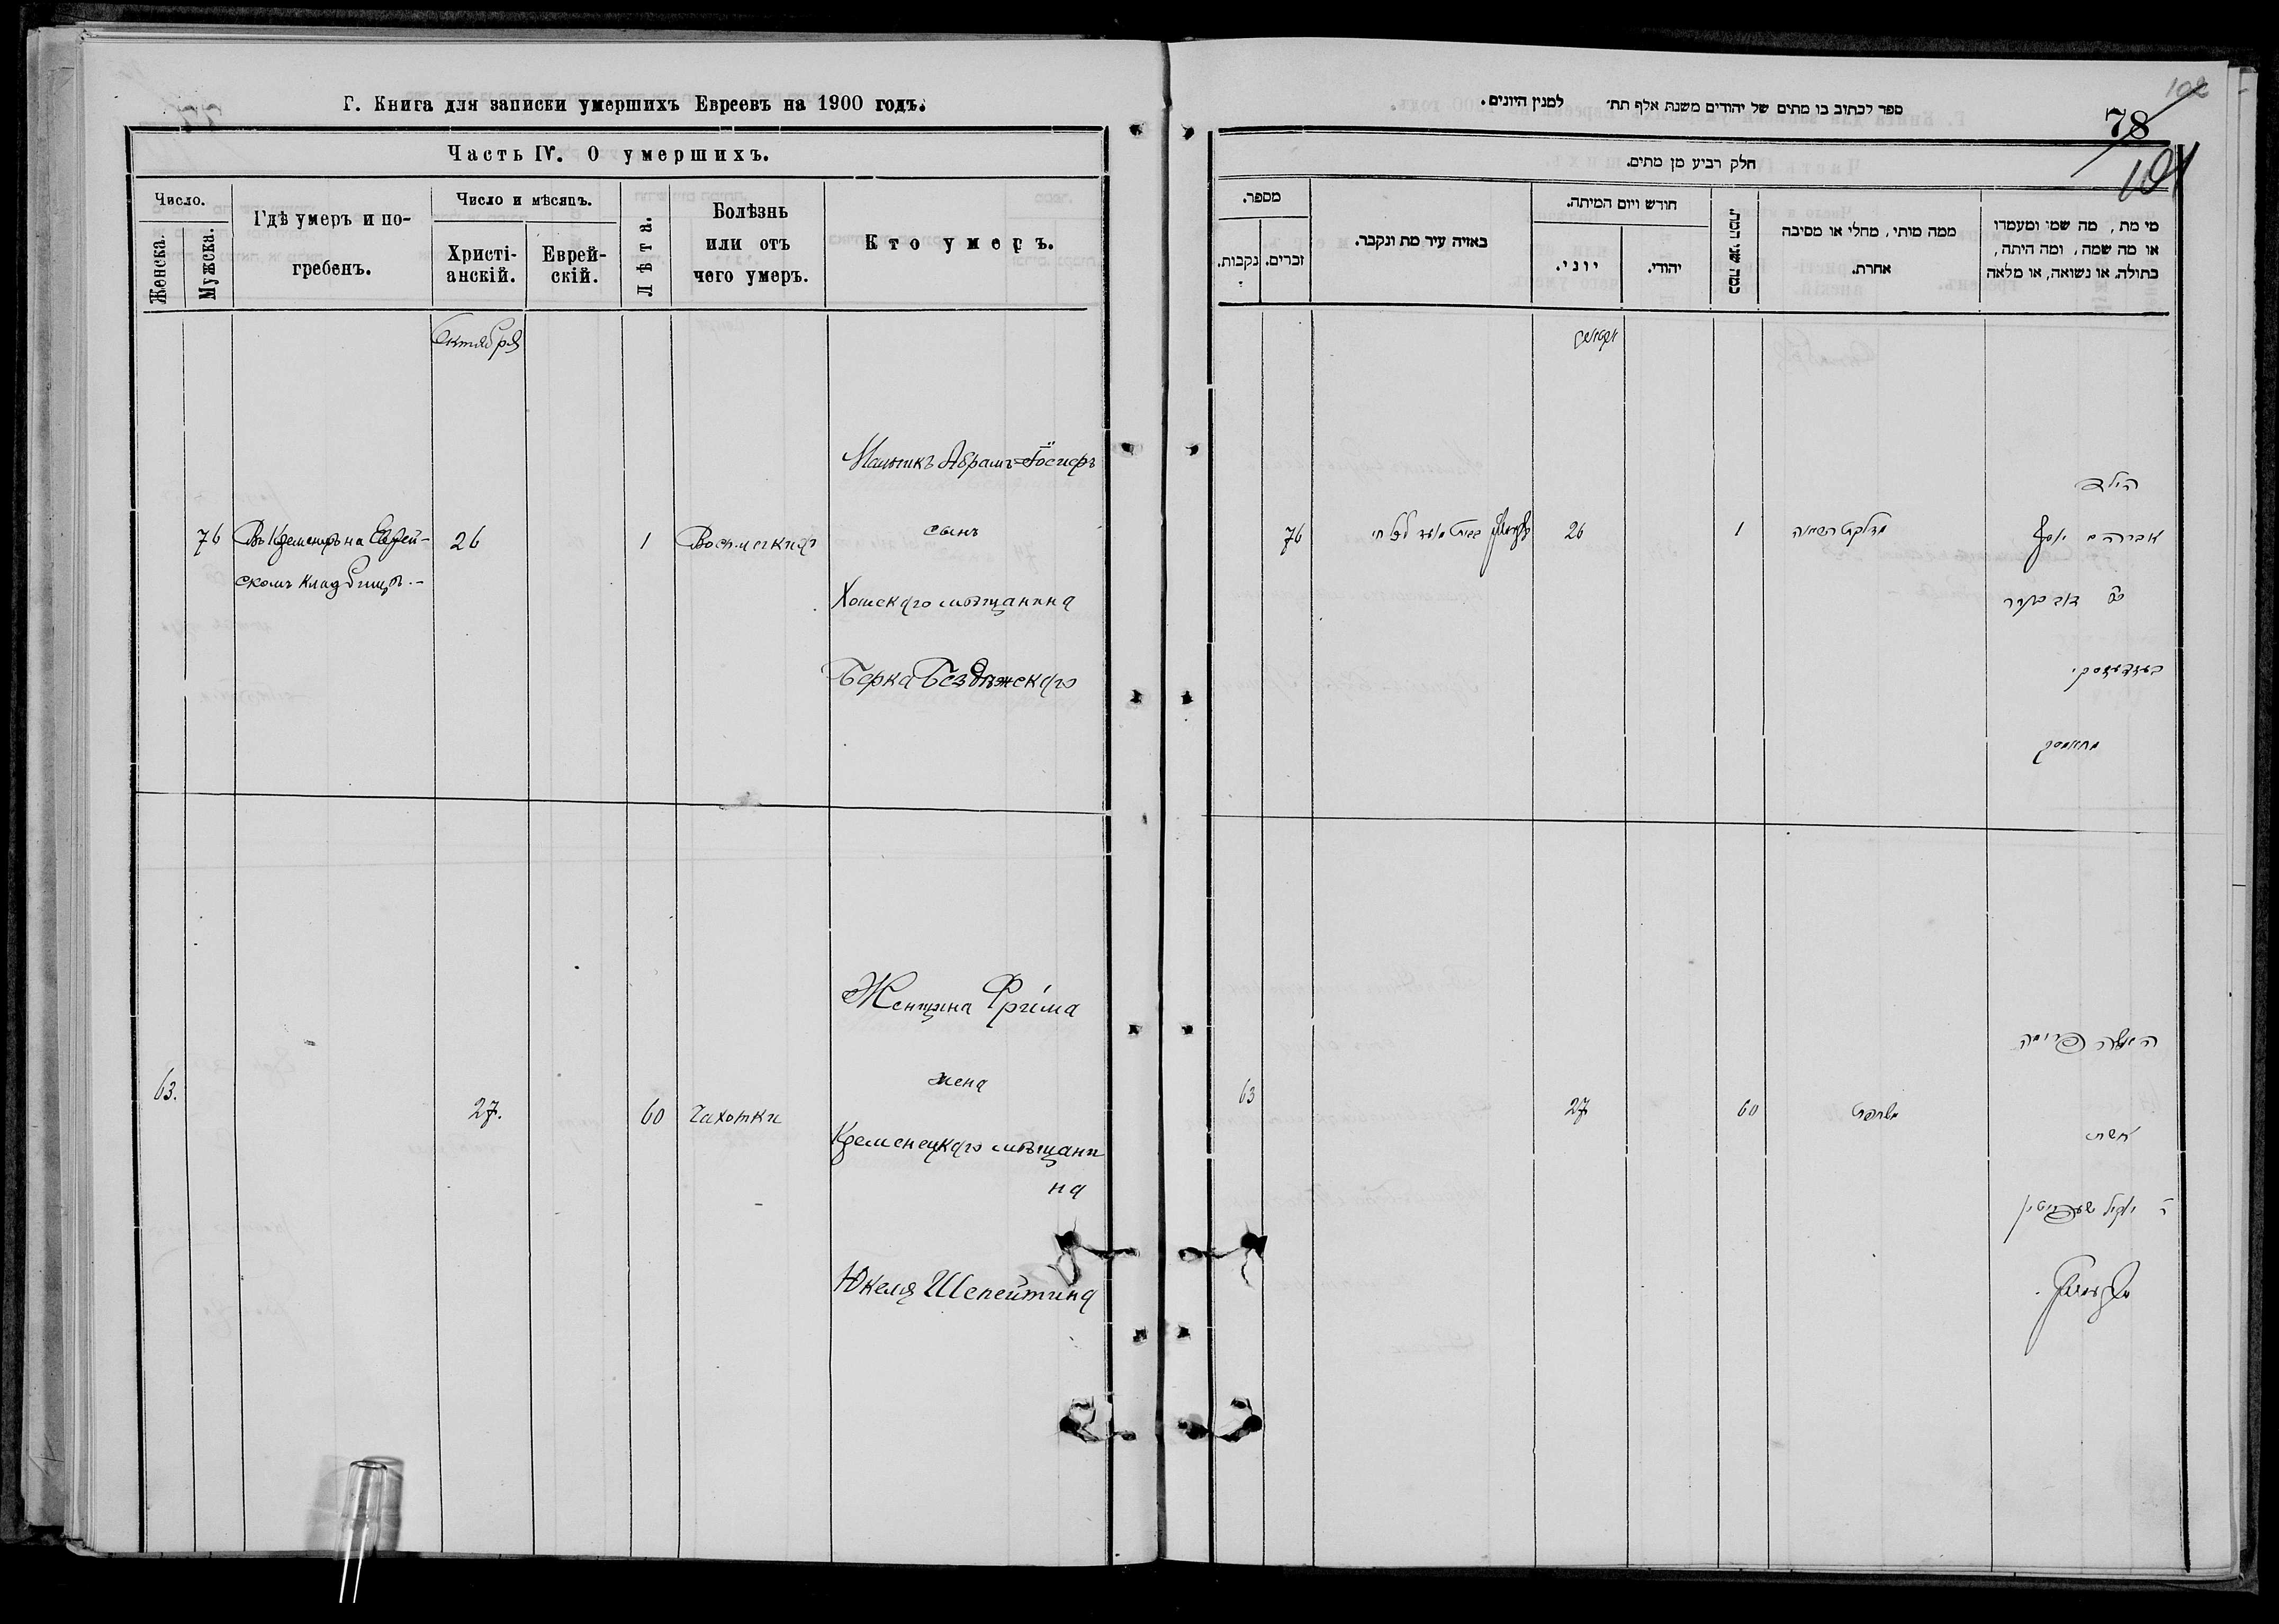 Г. Книга для записки умершихъ Евреевъ на 1900 годъ.
Часть IV. О умершихъ.
Число.
Женска.
Мужска.
Гдѣ умеръ и по-
гребенъ.
Число и мѣсяцъ.
Христі-
анскій.
Еврей-
скій.
Лѣта.
Болѣзнь
или отъ
чего умеръ.
Кто умеръ.
Октября
76
Въ Кременцѣ на Еврей-
скомъ кладбищѣ.-
26
1
Мальчикъ Абрамъ=Іосифъ
сынъ
Хомскаго мѣщанина
Берка Бездѣжскаго
63.
27.
60
Чахотки
Женщина Фрима
жена
Кременецкаго мѣщани
на
Юкеля Шепейтина
ספר לכתוב בו מתים של יהודים משנת אלף תת׳ למנין היונים.
102
78
101
חלק רביע מן מתים.
מספר.
נקבות.
זכרים.
באיזה עיר מת ונקבר.
חודש ויום המיתה.
יוני.
יהודי.
כמה שני המת.
ממה מותי, מחלי או מסיבה
אחרת.
מי מת, מה שמו ומעמדו
או מה שמה, ומה היתה,
בתולה, או נשואה, או מלאה
76
26
1
הילד
אברהם יוסף
63
27
60
האשה פרימה
אשת